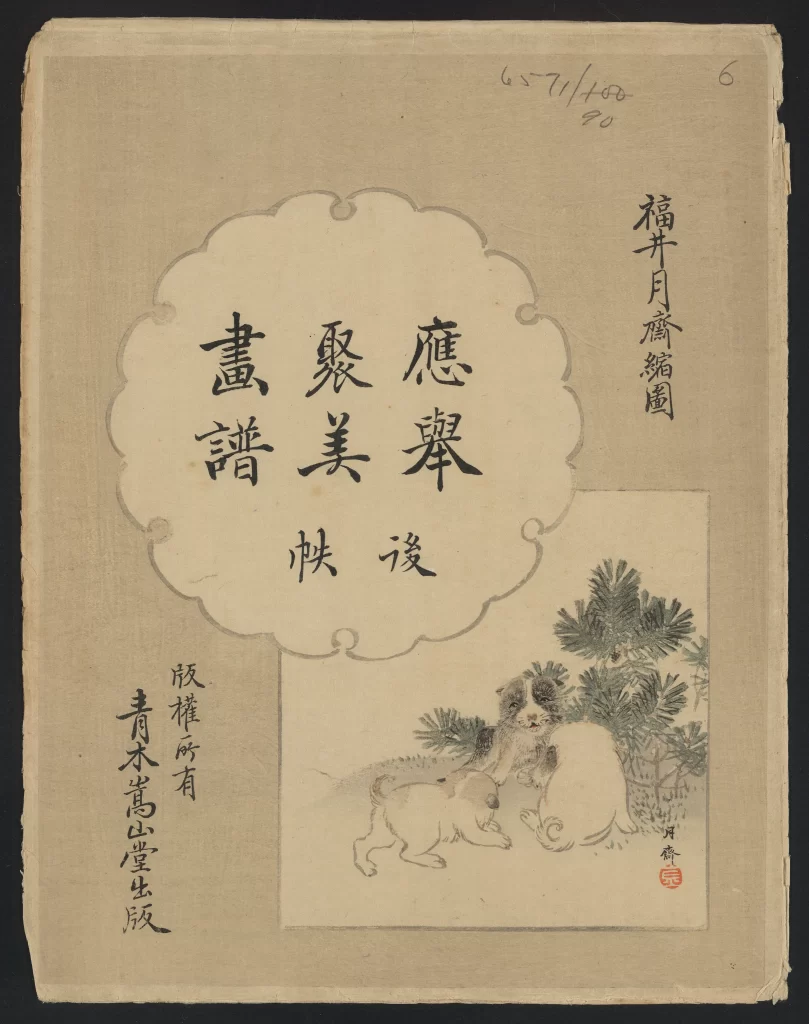 6571/100
90
6
福井月齋縮圖
應舉
聚美
畫譜
後帙
版權所有
青木嵩山堂出版
月齋